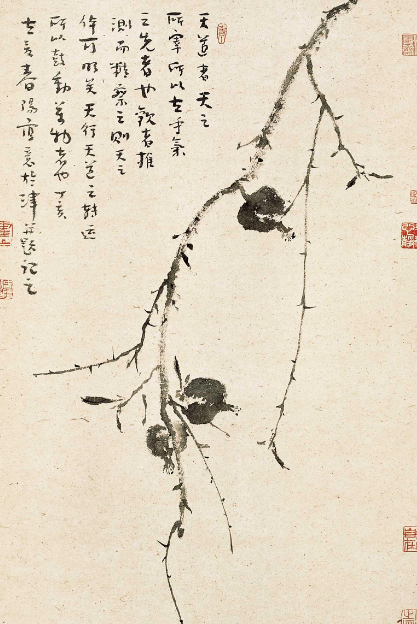 天道者天之
所宰所以乎氣
之先者也者推
測而難察之則天之
可明矣天行天道之转运
所以鼓動萬物者也丁亥
春陽寫意於津并題記之